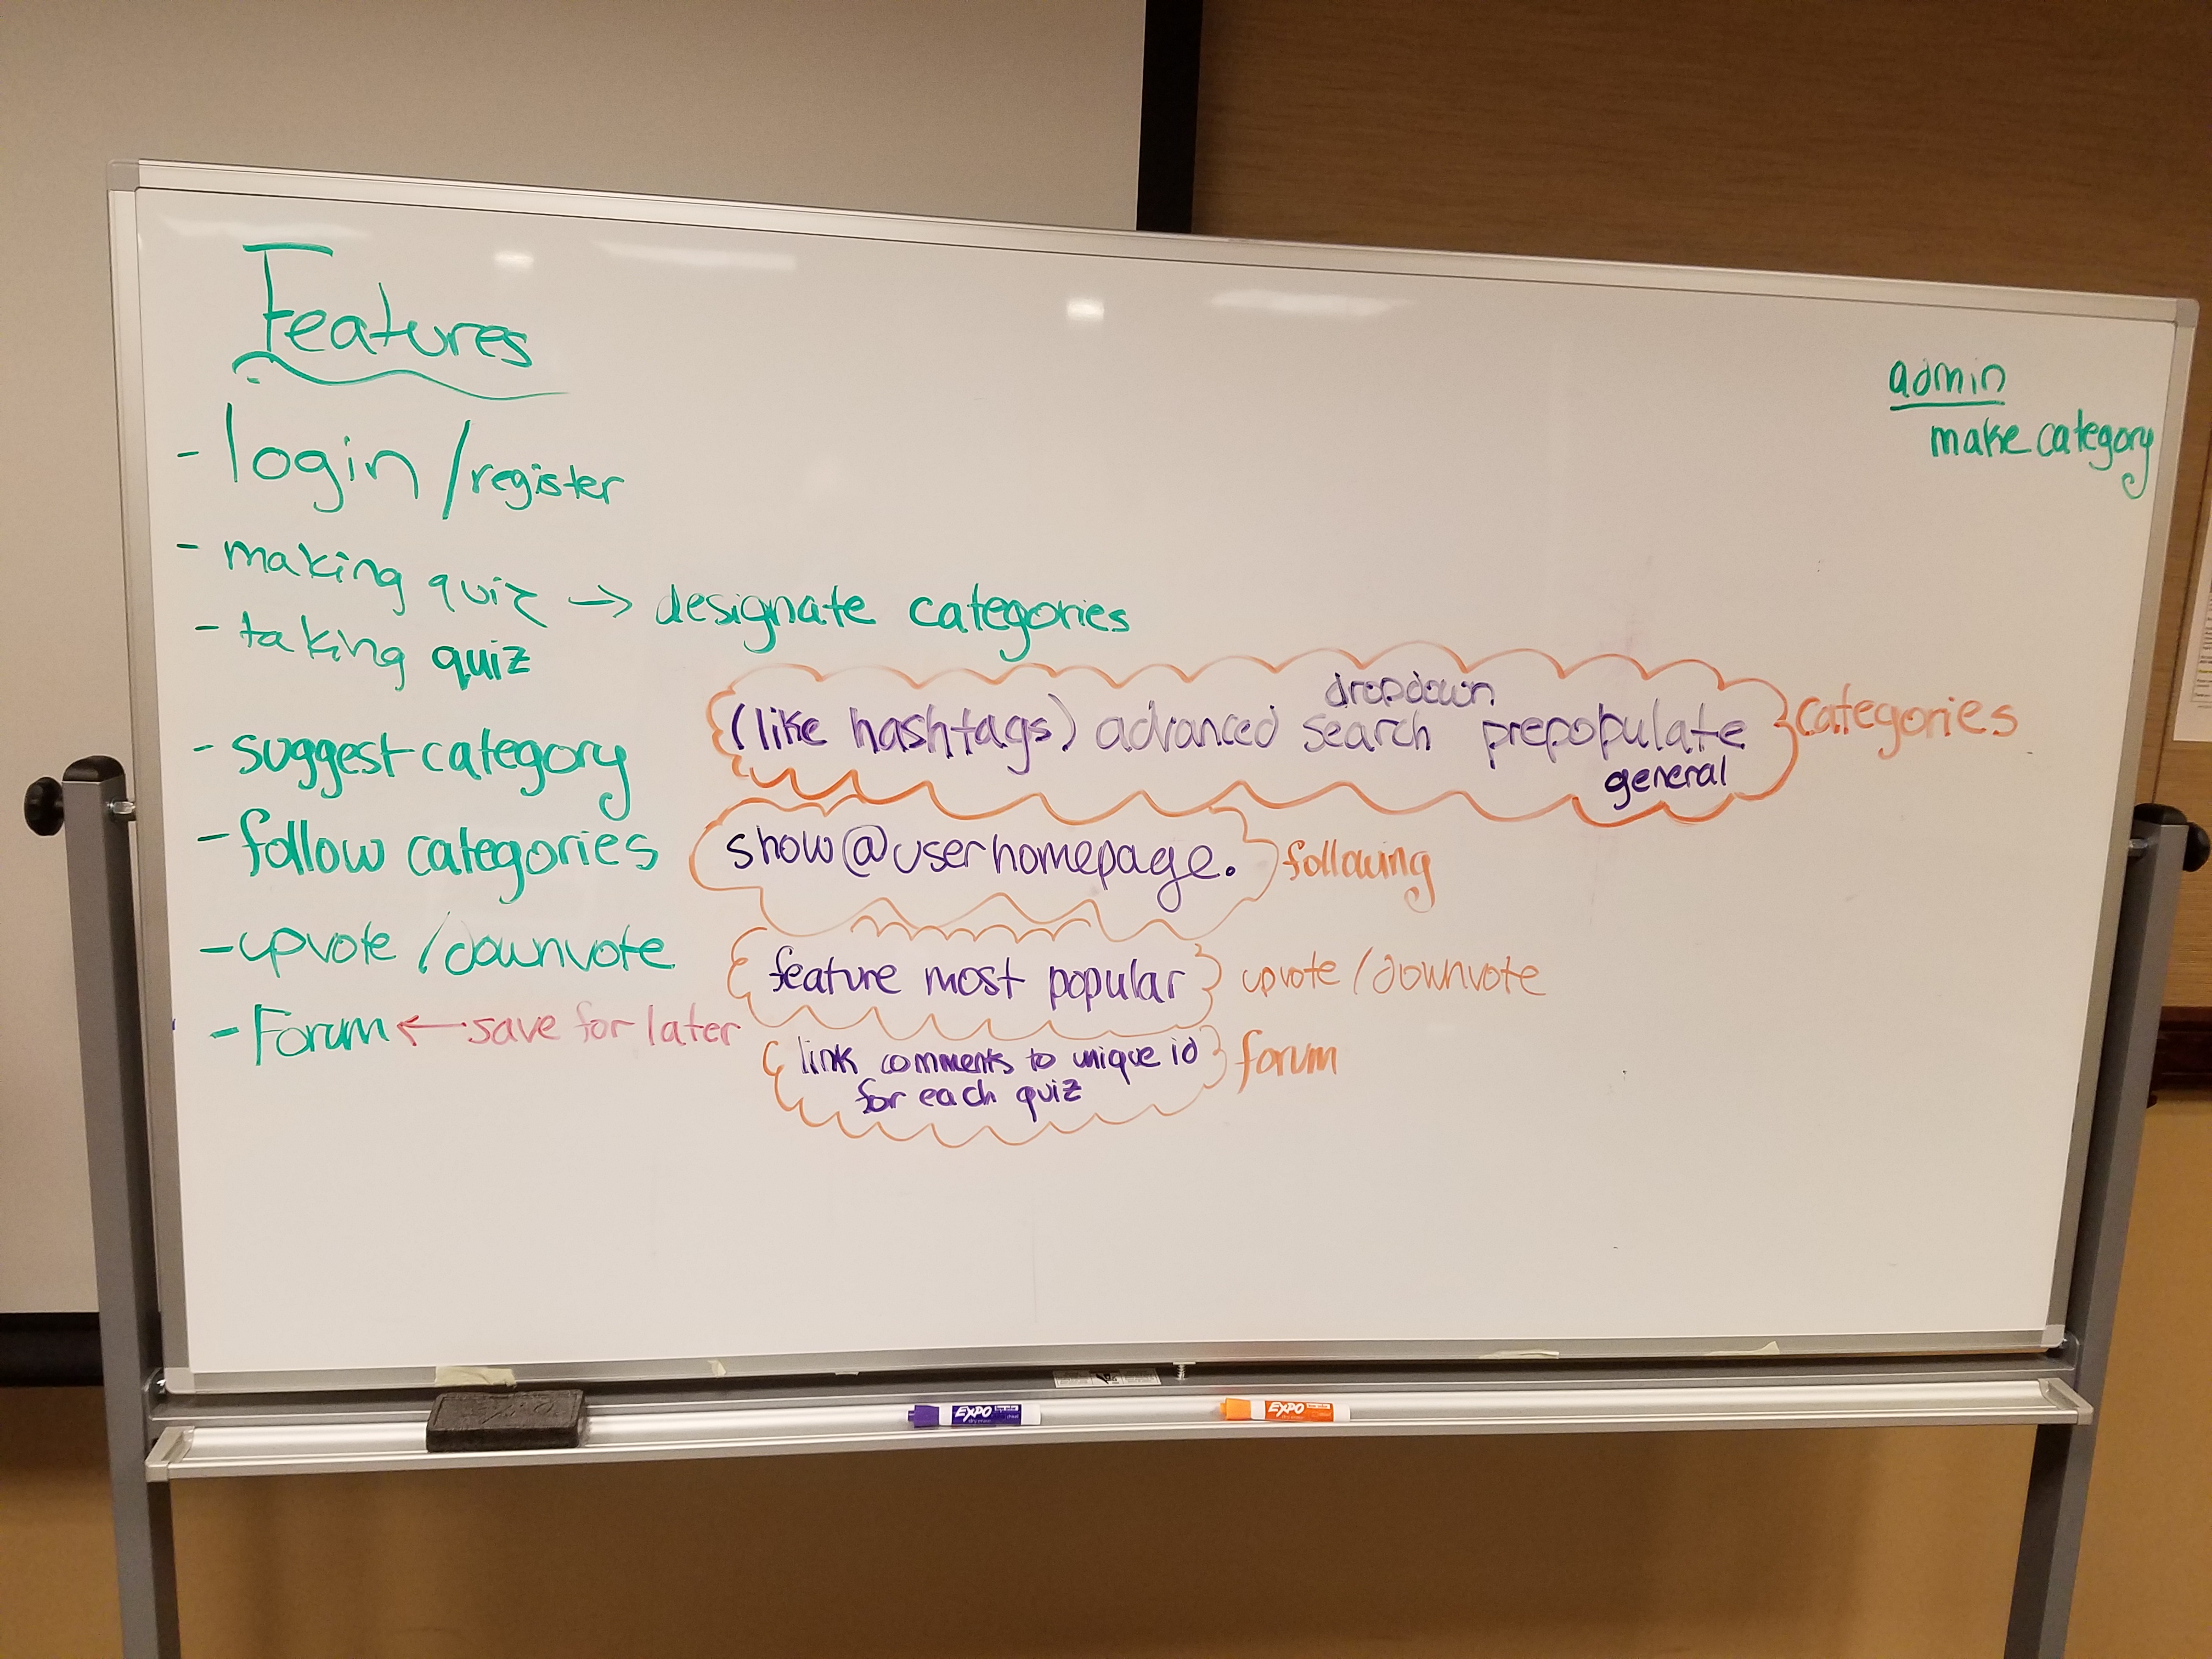 Features
- login / register
- making quiz → designate categories
- taking quiz
- suggest category
- follow categories
- upvote / downvote
- Forum ← save for later
dropdown
(like hashtags) advanced search prepopulate
general
categories
show @ user homepage.
following
feature most popular
upvote / downvote
link comments to unique id
for each quiz
forum
admin
make category
EXPO
EXPO